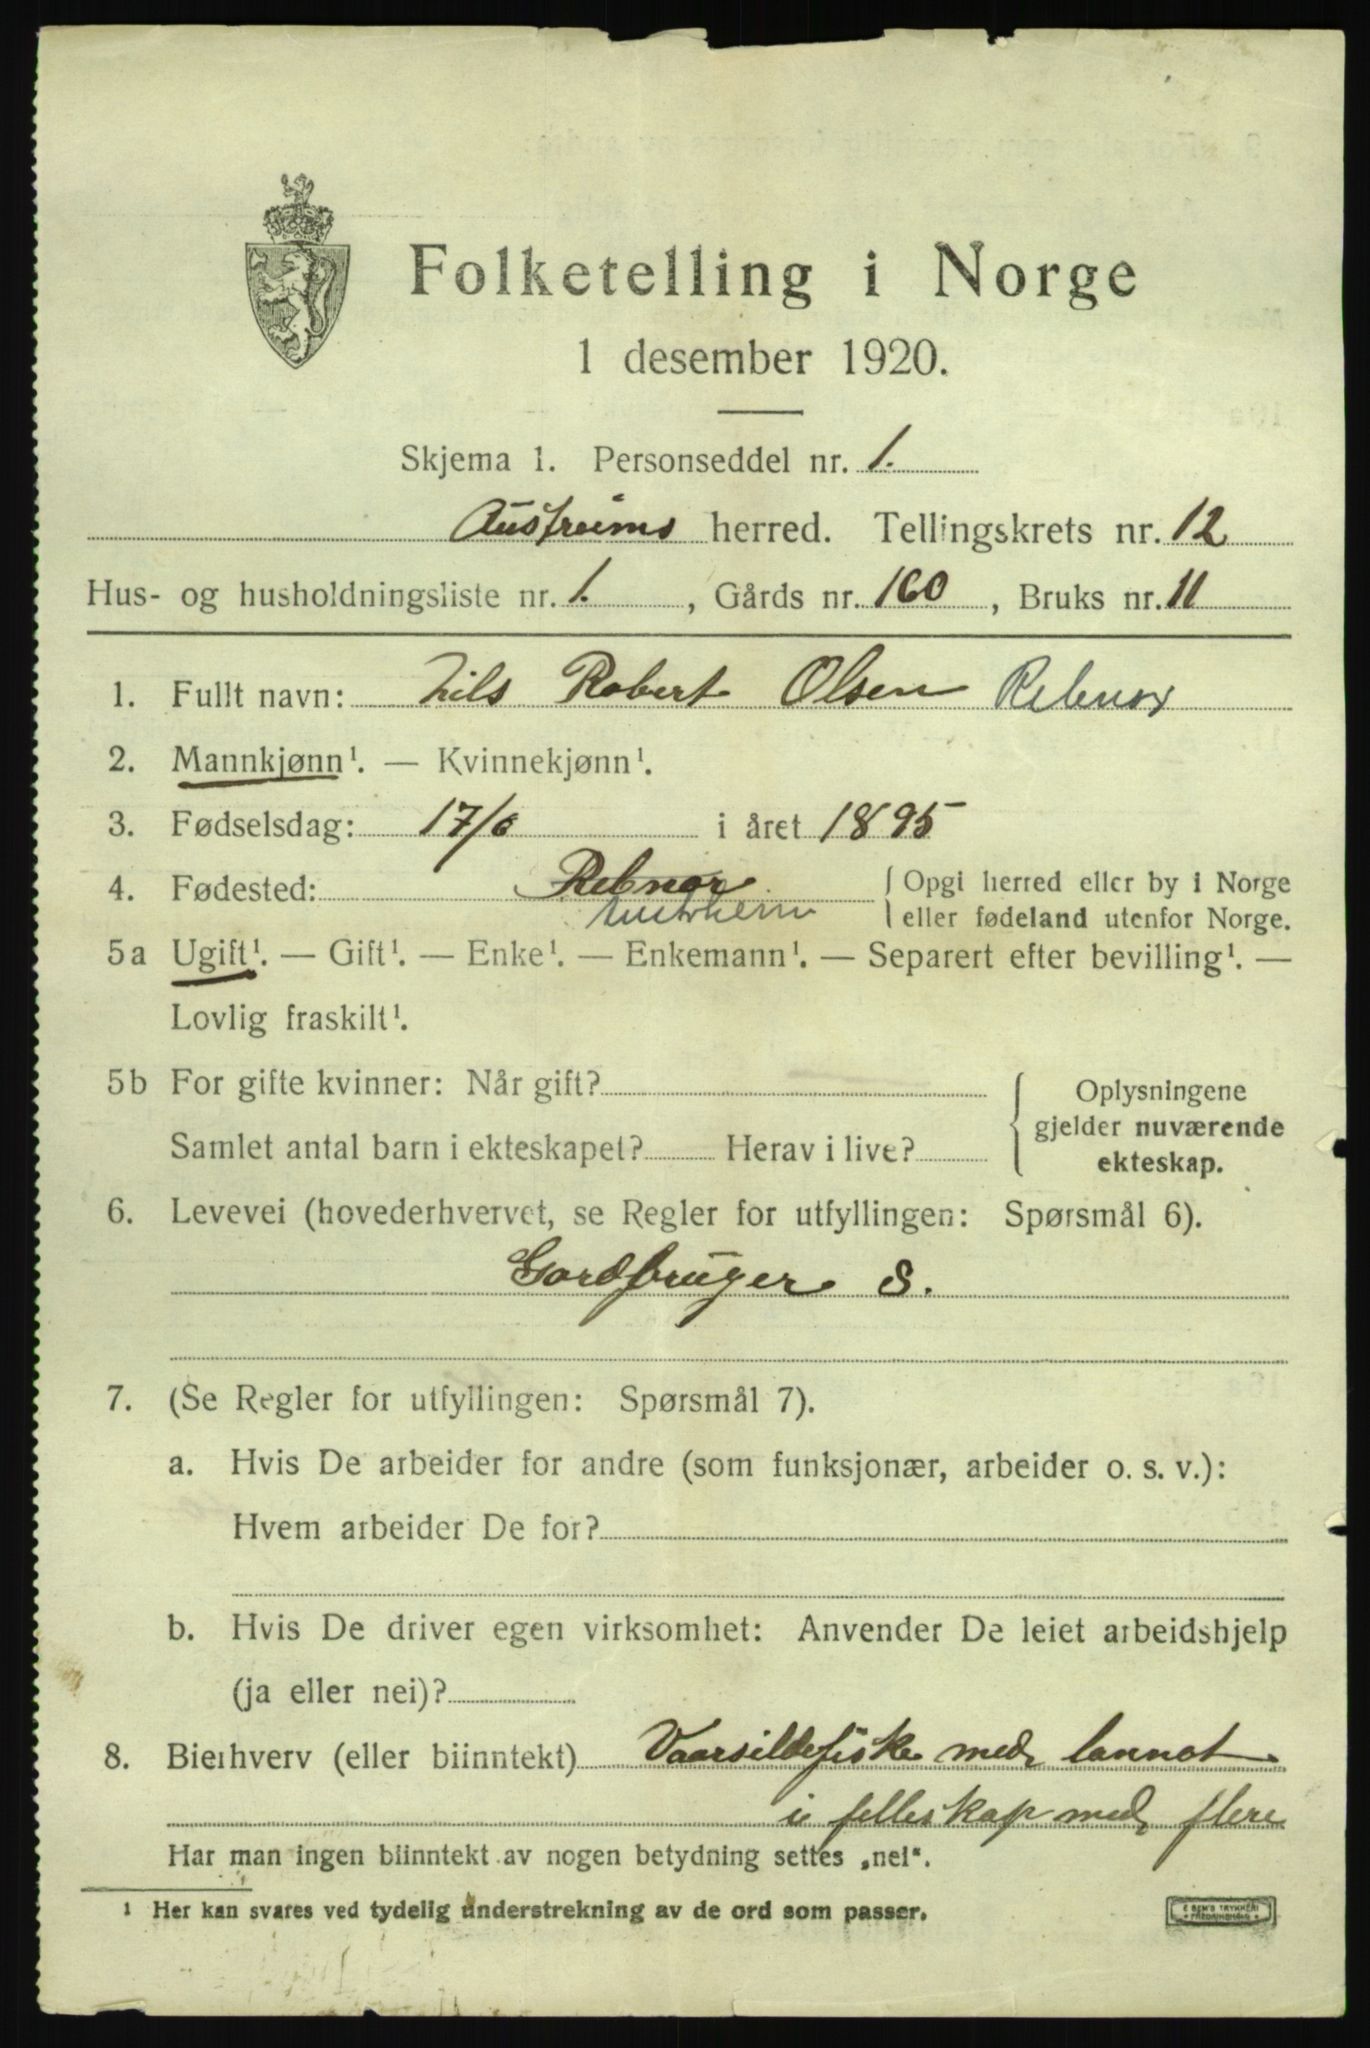 Folketelling i Norge
1 desember 1920.
Skjema 1. Personseddel nr. 1.
Austreims herred. Tellingskrets nr. 12
Hus- og husholdningsliste nr. 1. , Gårds nr. 160 , Bruks nr. 11
1. Fullt navn: Nils Robert Olsen Rebnor
2. Mannkjønn¹. — Kvinnekjønn¹.
3. Fødselsdag: 17/6 i året 1895
4. Fødested: Rebnor Opgi herred eller by i Norge
Austrheim eller fødeland utenfor Norge.
5a Ugift¹. — Gift¹. — Enke¹. — Enkemann¹. — Separert efter bevilling¹. —
Lovlig fraskilt¹.
5b For gifte kvinner: Når gift? Oplysningene
gjelder nuværende
Samlet antal barn i ekteskapet? Herav i live? ekteskap.
6. Levevei (hovederhvervet, se Regler for utfyllingen: Spørsmål 6).
Gardbruger S.
7. (Se Regler for utfyllingen: Spørsmål 7).
a. Hvis De arbeider for andre (som funksjonær, arbeider o. s. v.):
Hvem arbeider De for?
b. Hvis De driver egen virksomhet: Anvender De leiet arbeidshjelp
(ja eller nei)?
8. Bierhverv (eller biinntekt) Vaarsildefiske med lannot
i felleskap med flere
Har man ingen biinntekt av nogen betydning settes „nei“.
¹ Her kan svares ved tydelig understrekning av de ord som passer.
E SEM'S TRYKKERI
FREDRIKSHALD